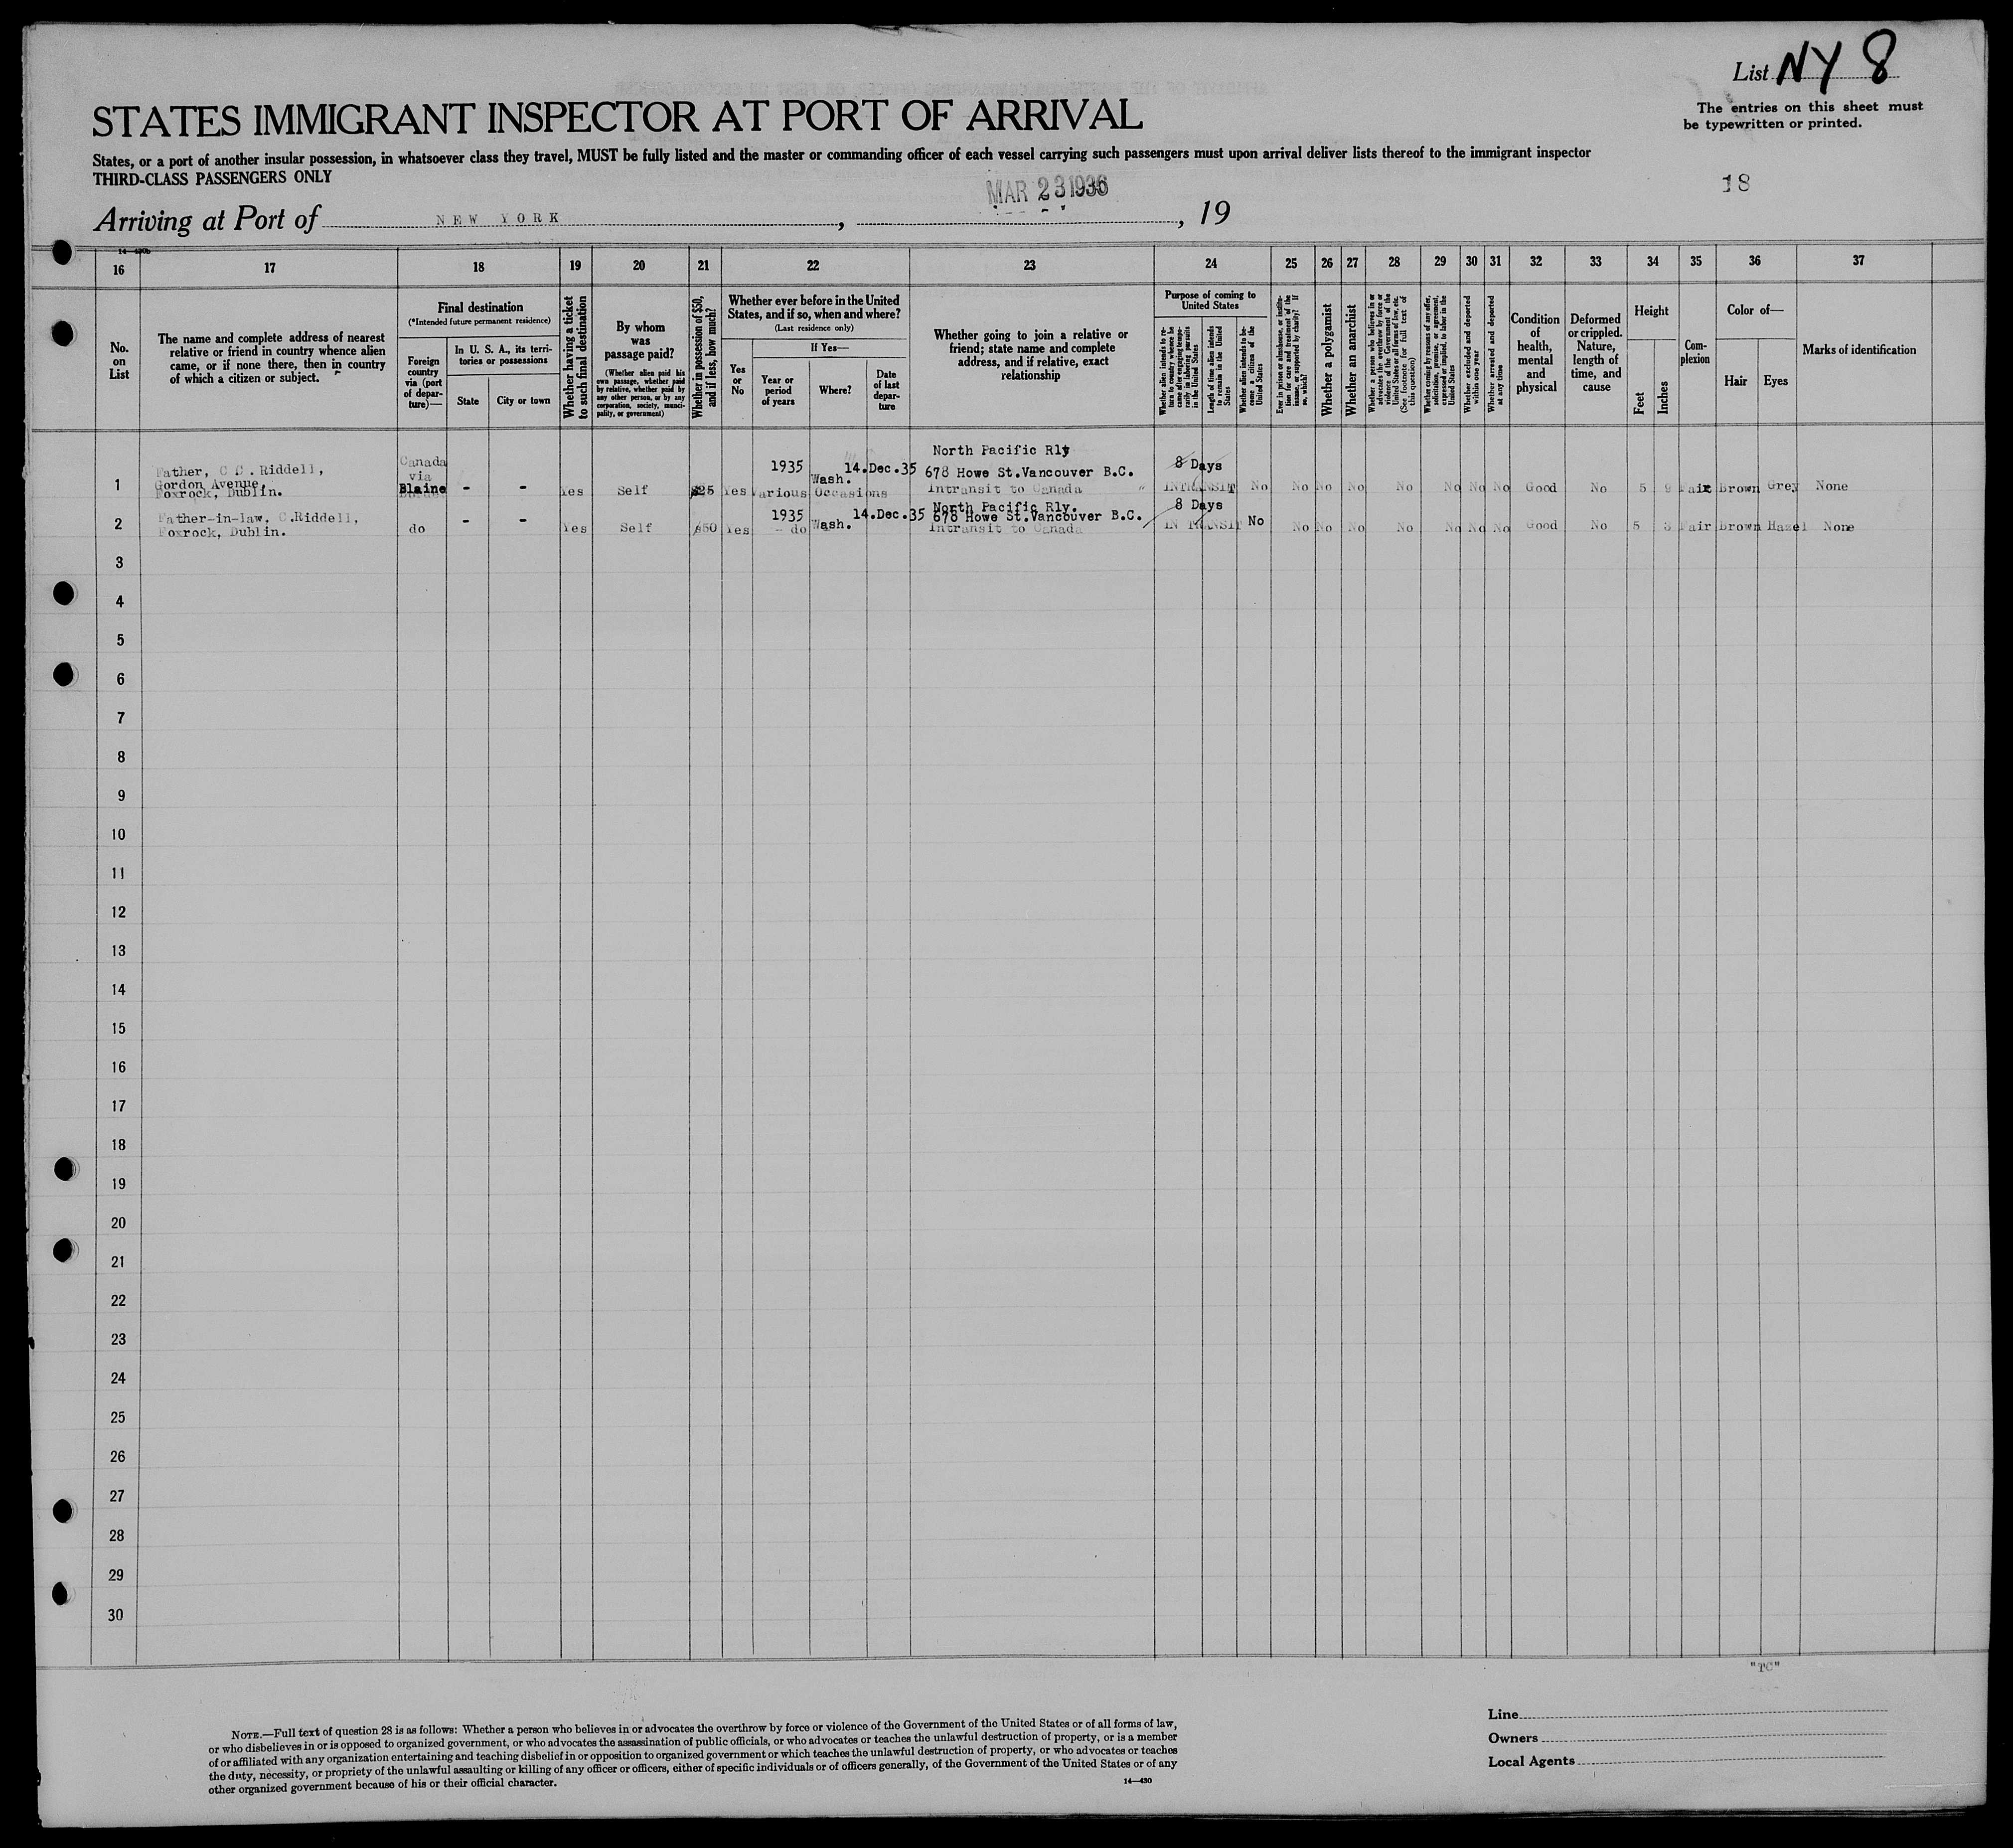 List NY 8
The entries on this sheet must
be typewritten or printed.
STATES IMMIGRANT INSPECTOR AT PORT OF ARRIVAL
States, or a port of another insular possession, in whatsoever class they travel, MUST be fully listed and the master or commanding officer of each vessel carrying such passengers must upon arrival deliver lists thereof to the immigrant inspector
THIRD-CLASS PASSENGERS ONLY
18
MAR 23 1936
Arriving at Port of NEW YORK, , 19
14—430b
16 17 18 19 20 21 22 23 24 25 26 27 28 29 30 31 32 33 34 35 36 37
No.
on
List
The name and complete address of nearest
relative or friend in country whence alien
came, or if none there, then in country
of which a citizen or subject.
Final destination
(*Intended future permanent residence)
Foreign
country
via (port
of depar-
ture)—
In U. S. A., its terri-
tories or possessions
State
City or town
Whether having a ticket
to such final destination
By whom
was
passage paid?
(Whether alien paid his
own passage, whether paid
by relative, whether paid by
any other person, or by any
corporation, society, munici-
pality, or government)
Whether in possession of $50,
and if less, how much?
Whether ever before in the United
States, and if so, when and where?
(Last residence only)
Yes
or
No
If Yes—
Year or
period
of years
Where?
Date
of last
depar-
ture
Whether going to join a relative or
friend; state name and complete
address, and if relative, exact
relationship
Purpose of coming to
United States
Whether alien intends to re-
turn to country whence he
came after engaging tempo-
rarily in laboring pursuits
in the United States
Length of time alien intends
to remain in the United
States
Whether alien intends to be-
come a citizen of the
United States
Ever in prison or almshouse, or institu-
tion for care and treatment of the
insane, or supported by charity? If
so, which?
Whether a polygamist
Whether an anarchist
Whether a person who believes in or
advocates the overthrow by force or
violence of the Government of the
United States or all forms of law, etc.
(See footnote for full text of
this question)
Whether coming by reasons of any offer,
solicitation, promise, or agreement,
expressed or implied, to labor in the
United States
Whether excluded and deported
within one year
Whether arrested and deported
at any time
Condition
of
health,
mental
and
physical
Deformed
or crippled.
Nature,
length of
time, and
cause
Height
Feet
Inches
Com-
plexion
Color of—
Hair
Eyes
Marks of identification
North Pacific Rly
Canada 1935 14.Dec.35 678 Howe St.Vancouver B.C. 8 Days
Father, C Riddell, via Wash.
1 Gordon Avenue, Blaine - - Yes Self $25 Yes Various Occasions Intransit to Canada " INTRANSIT No No No No No No No No Good No 5 9 Fair Brown Grey None
Foxrock, Dublin.
North Pacific Rly. 8 Days
Father-in-law, C.Riddell, 1935 14.Dec.35 678 Howe St.Vancouver B.C.
2 Foxrock, Dublin. do - - Yes Self $50 Yes - do Wash. Intransit to Canada IN TRANSIT No No No No No No No No Good No 5 3 Fair Brown Hazel None
3
4
5
6
7
8
9
10
11
12
13
14
15
16
17
18
19
20
21
22
23
24
25
26
27
28
29
30
"TC"
NOTE.—Full text of question 28 is as follows: Whether a person who believes in or advocates the overthrow by force or violence of the Government of the United States or of all forms of law,
or who disbelieves in or is opposed to organized government, or who advocates the assassination of public officials, or who advocates or teaches the unlawful destruction of property, or is a member
of or affiliated with any organization entertaining and teaching disbelief in or opposition to organized government or which teaches the unlawful destruction of property, or who advocates or teaches
the duty, necessity, or propriety of the unlawful assaulting or killing of any officer or officers, either of specific individuals or of officers generally, of the Government of the United States or of any
other organized government because of his or their official character.
14—430
Line
Owners
Local Agents